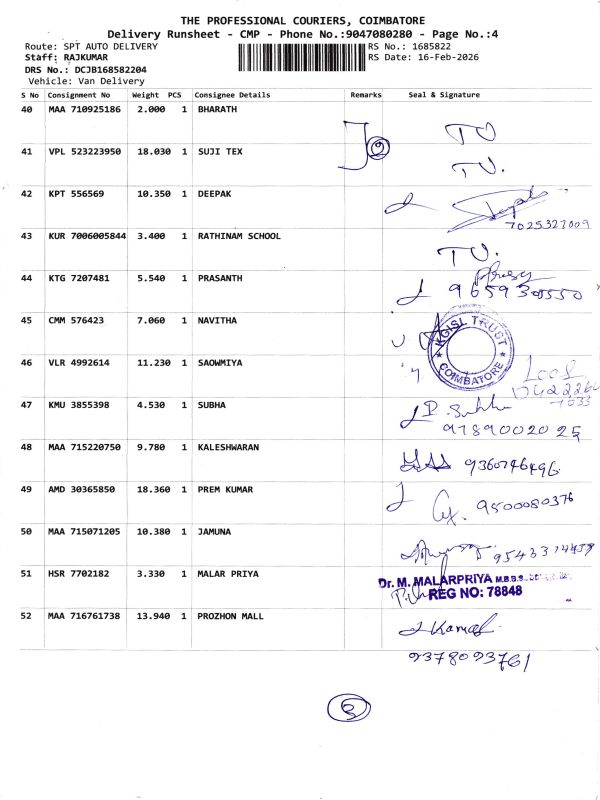 THE PROFESSIONAL COURIERS, COIMBATORE
Delivery Runsheet - CMP - Phone No.:9047080280 - Page No.:4
Route: SPT AUTO DELIVERY RS No.: 1685822
Staff: RAJKUMAR RS Date: 16-Feb-2026
DRS No.: DCJB168582204
Vehicle: Van Delivery
S No Consignment No Weight PCS Consignee Details Remarks Seal & Signature
40 MAA 710925186 2.000 1 BHARATH
41 VPL 523223950 18.030 1 SUJI TEX
42 KPT 556569 10.350 1 DEEPAK
7025327009
43 KUR 7006005844 3.400 1 RATHINAM SCHOOL
44 KTG 7207481 5.540 1 PRASANTH
45 CMM 576423 7.060 1 NAVITHA
KGISL TRUST
COIMBATORE
46 VLR 4992614 11.230 1 SAOWMIYA
47 KMU 3855398 4.530 1 SUBHA
9789002025
48 MAA 715220750 9.780 1 KALESHWARAN
9360746496
49 AMD 30365850 18.360 1 PREM KUMAR
9500080376
50 MAA 715071205 10.380 1 JAMUNA
51 HSR 7702182 3.330 1 MALAR PRIYA
Dr. M. MALARPRIYA M.B.B.S.
REG NO: 78848
52 MAA 716761738 13.940 1 PROZHON MALL
Kamal
9378093761